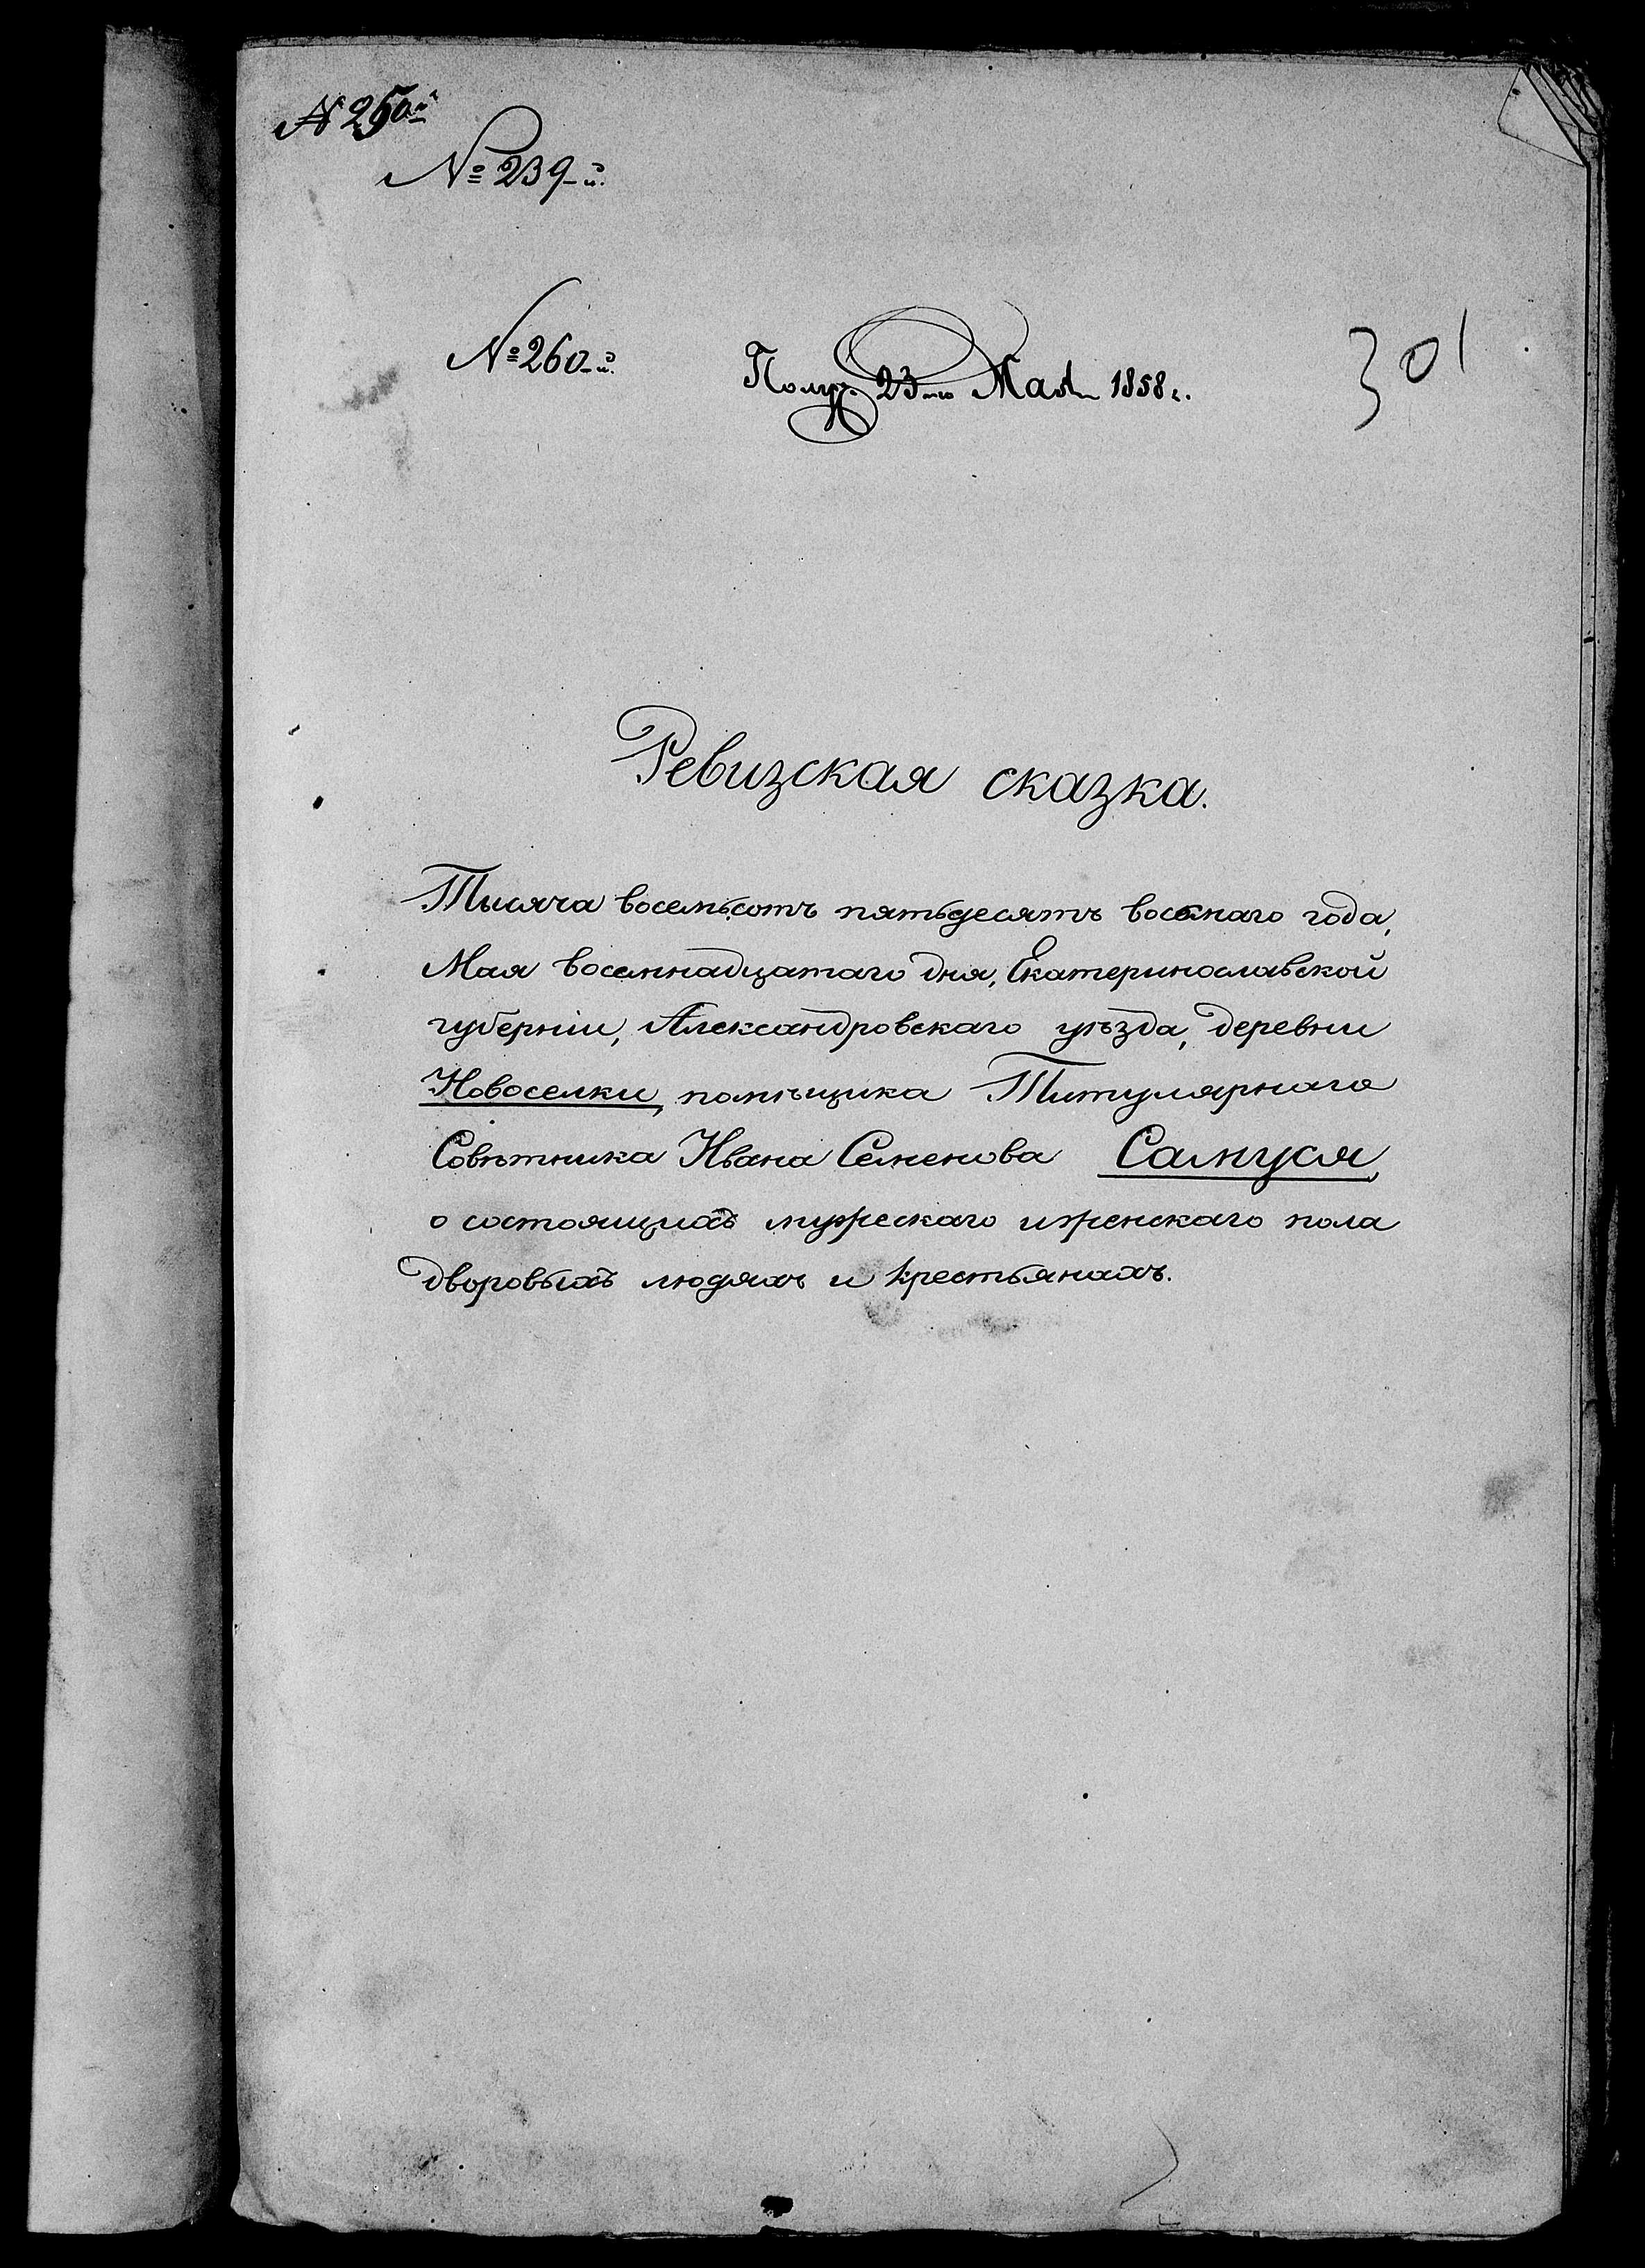 № 250й
№ 239-й.
№ 260-й.
Получ. 23-го Мая 1858 г.
301
Ревизская сказка.
Тысяча восемьсотъ пятьдесятъ восмаго года,
Мая восемнадцатаго дня, Екатеринославской
губерніи, Александровскаго уѣзда, деревни
Новоселки, помѣщика Титулярнаго
Совѣтника Ивана Семенова Самуся,
о состоящихъ мужескаго и женскаго пола
дворовыхъ людяхъ и крестьянахъ.